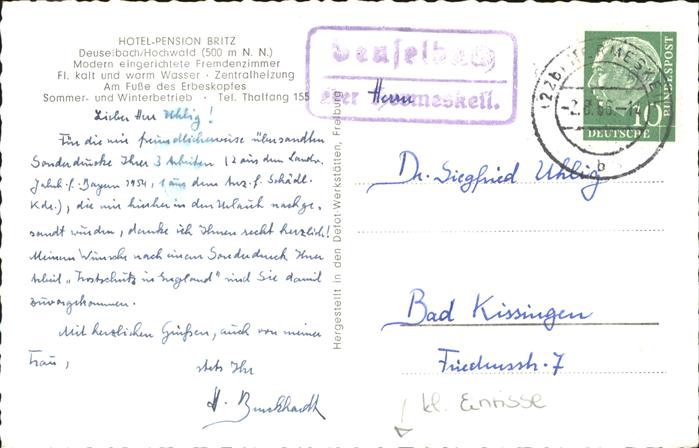 HOTEL-PENSION BRITZ
Deuselbach/Hochwald (500 m N. N.)
Modern eingerichtete Fremdenzimmer
Fl. kalt und warm Wasser · Zentralheizung
Am Fuße des Erbeskopfes
Sommer- und Winterbetrieb · Tel. Thalfang 155
Lieber Herr Uhlig!
Für die mir freundlicherweise übersandten
Sonderdrucke Ihrer 3 Arbeiten (2 aus dem Landw.
Jahrb. f. Bayern 1954, 1 aus dem Anz. f. Schädl.
Kde.), die mir hierher in den Urlaub nachge-
sandt wurden, danke ich Ihnen recht herzlich!
Meinem Wunsche nach einem Sonderdruck Ihrer
Arbeit „Frostschutz in England" sind Sie damit
zuvorgekommen.
Mit herzlichen Grüßen, auch von meiner
Frau,
stets Ihr
H. Burckhardt
Hergestellt in den Defot-Werkstätten, Freiburg
Deuselbach
über Hermeskeil.
Herrn
Dr. Siegfried Uhlig
Bad Kissingen
Friedensstr. 7
kl. Einrisse
(22b) HERMESKEIL
b
10
DEUTSCHE
BUNDESPOST